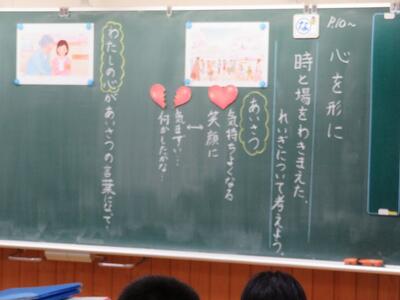 P.10~
な
心を形に
時と場をわきまえた、
れいぎについて考えよう。
あいさつ
気持ちよくなる
笑顔に
↔
気まずい…
何かしたかな…
わたしの心があいさつの言葉になって…